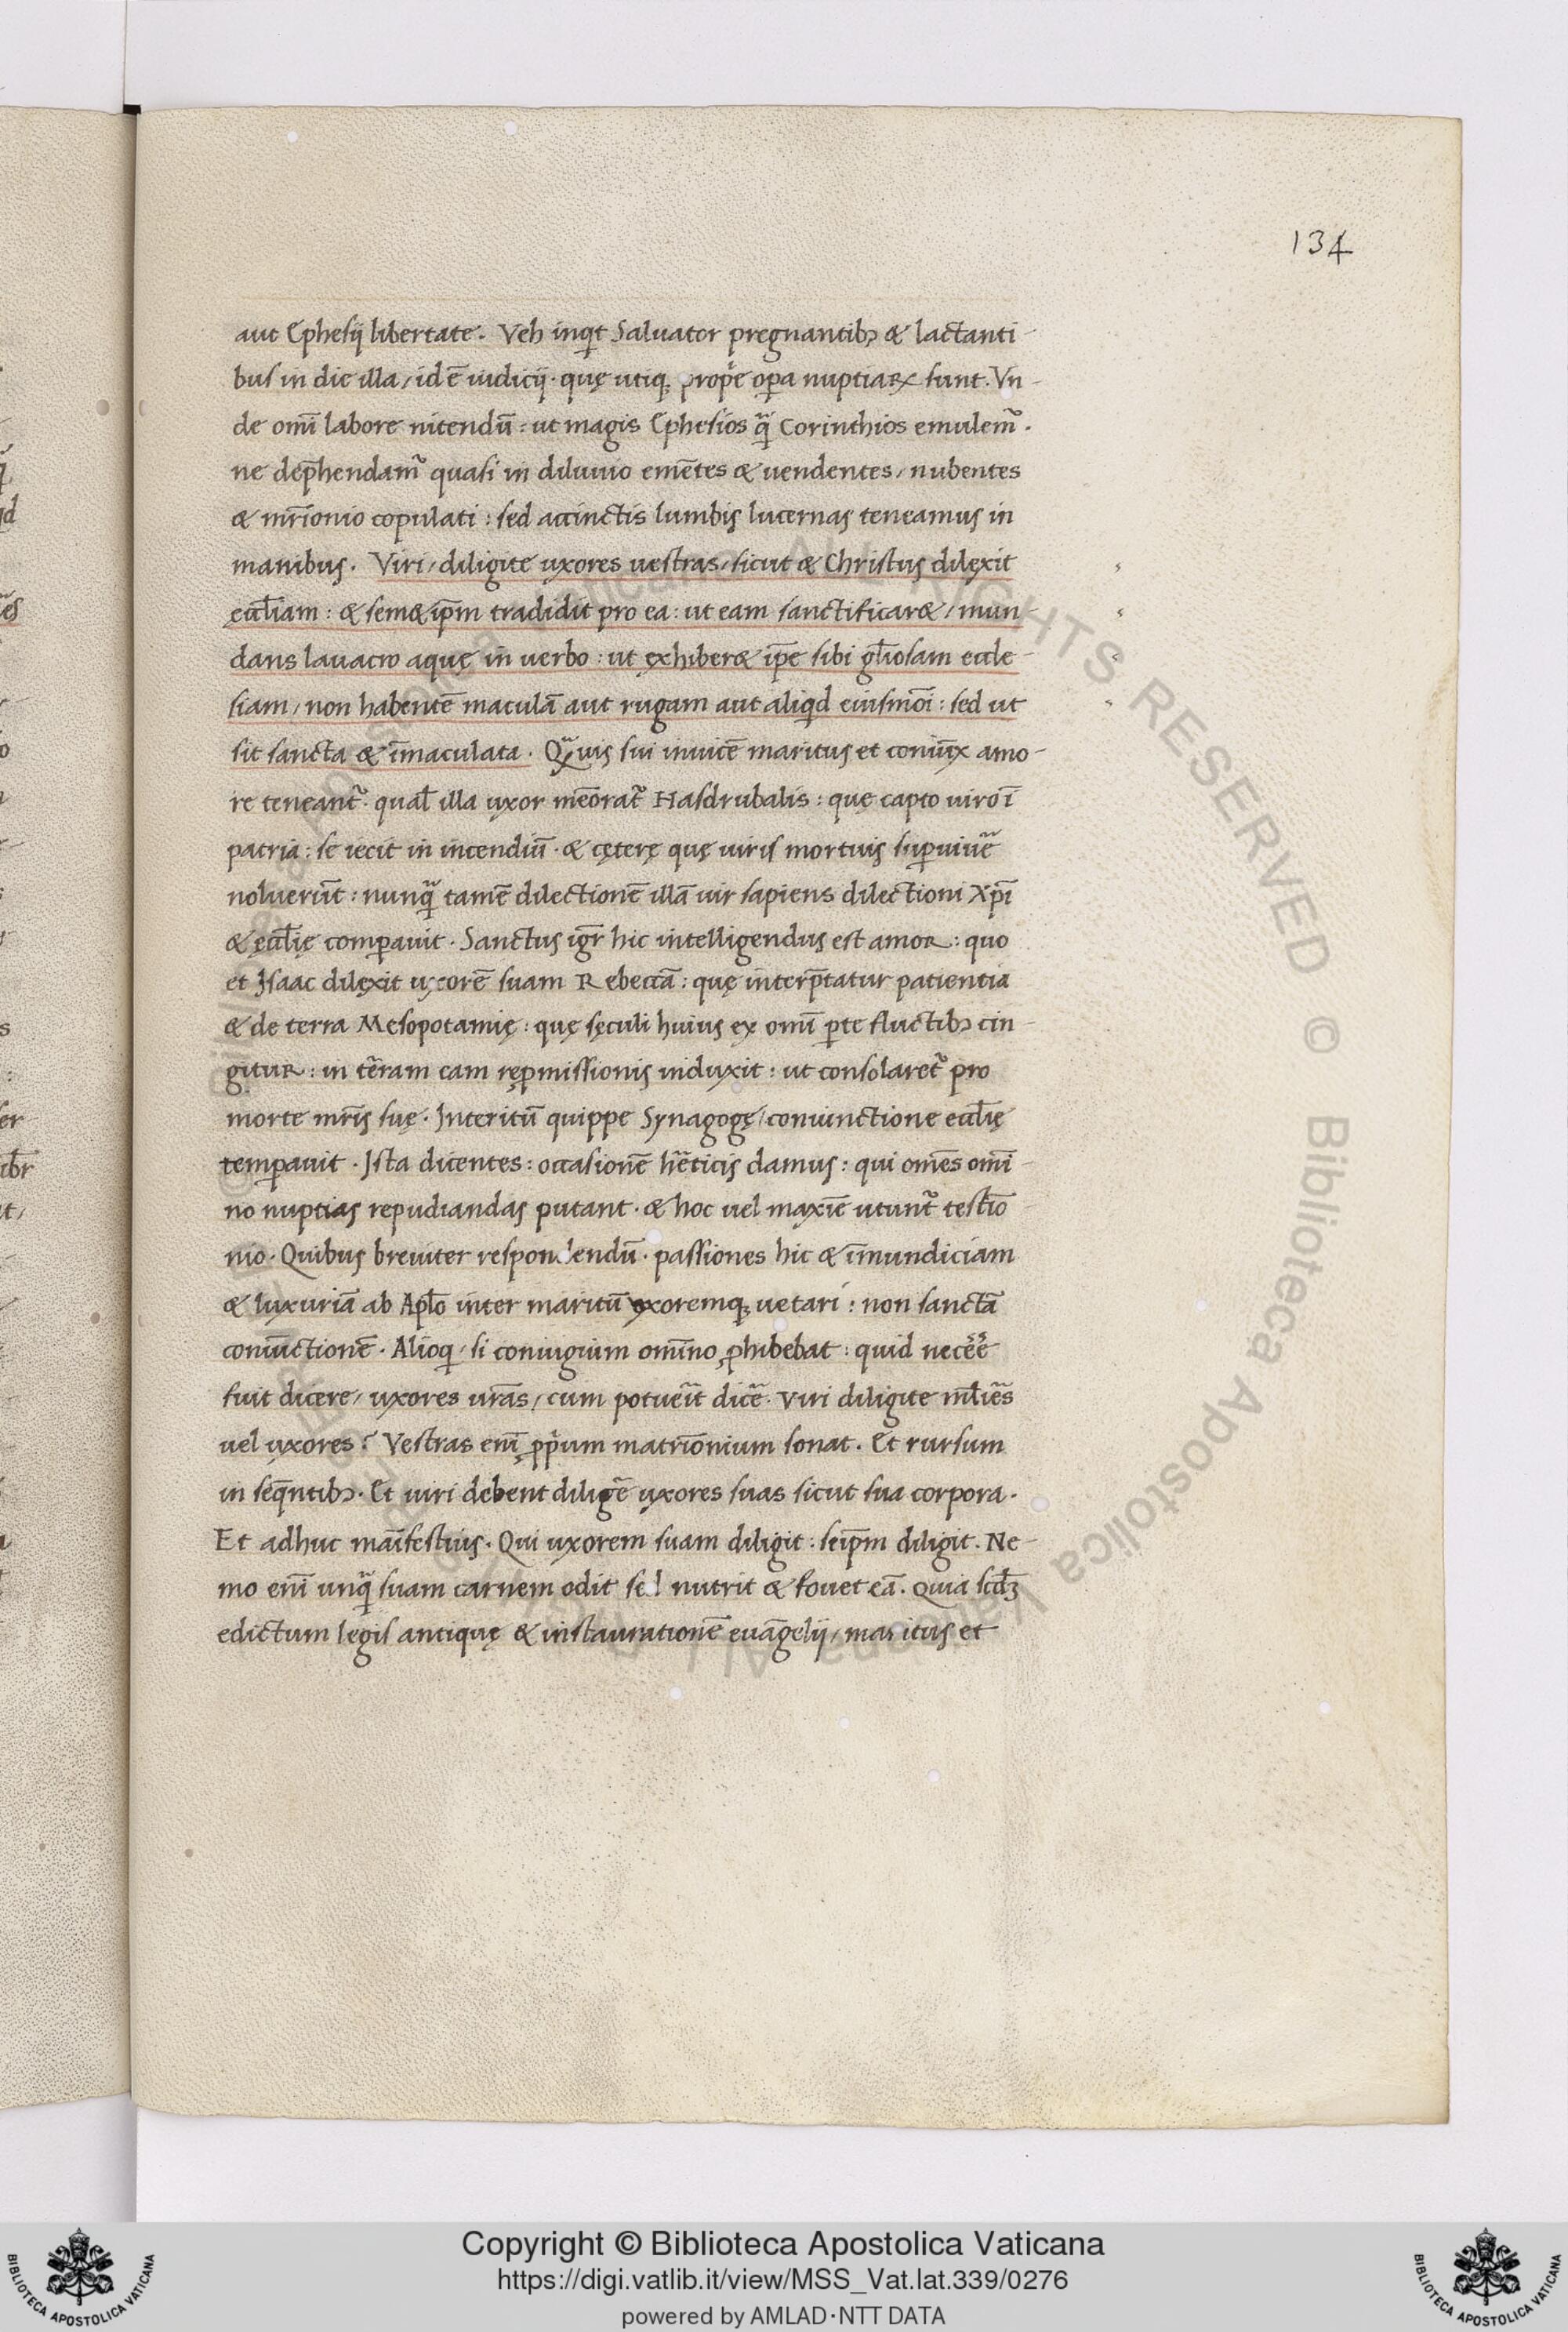 134
aut Ephesij libertate. Veh inqͥt Saluator pregnantibꝫ & lactanti-
bus in die illa, id ē iudicij. quę utiqꝫ prope oꝑa nuptiaꝝ sunt. Vn-
de omī labore nitendū: ut magis Ephesios qͣ̃ Corinthios emulem᷑.
ne dep̄hendam᷑ quasi in diluuio emētes & uendentes, nubentes
& mr̄ionio copulati: sed accinctis lumbis lucernas teneamus in
manibus. Viri, diligite uxores uestras, sicut & Christus dilexit
ecc̄liam: & sem&ip̄m tradidit pro ea: ut eam sanctificar&, mun-
dans lauacro aquę in uerbo: ut exhiber& ip̄e sibi gl̄iosam eccle-
siam, non habentē maculā aut rugam aut aliqͥd eiusmōi: sed ut
sit sancta & īmaculata. Qͣ̃uis sui inuicē maritus et coniūx amo-
re teneant᷑. qual̄ illa uxor mēorat᷑ Hasdrubalis: que capto uiro ī
patria: se iecit in incendiū. & cęterę quę uiris mortuis suꝑuiue᷑
noluerūt: nunqͣ̃ tamē dilectionē illā uir sapiens dilectioni Xp̄i
& ęcc̄lię comꝑauit. Sanctus igr̄ hic intelligendus est amor: quo
et Isaac dilexit uxorē suam Rebeccā: quę interp̄tatur patientia
& de terra Mesopotamię: quę sęculi huius ex omī ꝑte fluctibꝫ cin-
gitur: in tēram eam reꝓmissionis induxit: ut consolaret᷑ pro
morte mr̄is suę. Interitū quippe Synagogę, coniunctione ecc̄lię
temꝑauit. Ista dicentes: occasionē hēticis damus: qui omēs omī-
no nuptias repudiandas putant. & hoc uel maxīe utunt᷑ testīo-
nio. Quibus breuiter respondendū. passiones hic & īmundiciam
& luxuriā ab Apl̄o inter maritū uxoremqꝫ uetari: non sanctā
coniūctionē. Alioqͥ, si coniugium omīno ꝓhibebat: quid necēē
fuit dicere, uxores ur̄as, cum potue᷑it dice᷑. Viri diligite ml̄ie᷑s
uel uxores? Vestras enī ꝓpͥum matrīonium sonat. Et rursum
in seq̄ntibꝫ. Et uiri debent dilige᷑ uxores suas sicut sua corpora.
Et adhuc māifestius. Qui uxorem suam diligit: seip̄m diligit. Ne-
mo enī unqͣ̃ suam carnem odit sed nutrit & fouet eā. Quia scd̄ꝫ
edictum legis antiquę & instaurationē euāgelij, maritus et
Copyright © Biblioteca Apostolica Vaticana
https://digi.vatlib.it/view/MSS_Vat.lat.339/0276
powered by AMLAD·NTT DATA